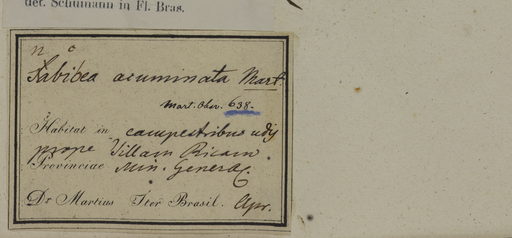 det. Schumann in Fl. Bras.
n c
Sabicea acuminata Mart.
Mart. Obs. 638.
Habitat in campestribus udis
prope Villam Ricam.
Provinciae Min. Generae.
Dr Martius Iter Brasil. Apr.